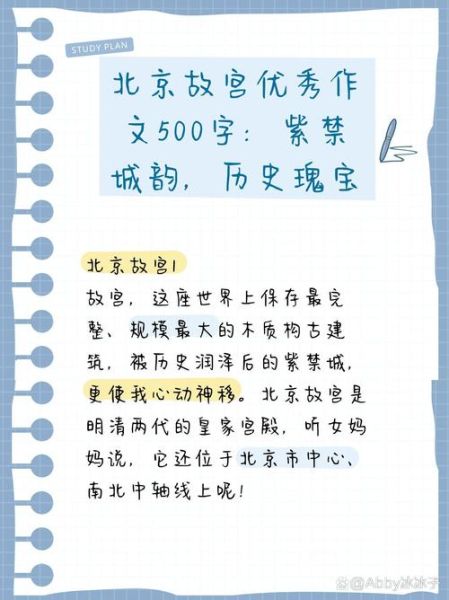 STUDY PLAN
北京故宫优秀作
文500字：紫禁
城韵，历史瑰宝
北京故宫1
故宫，这座世界上保存最完
整、规模最大的木质构古建
筑，被历史润泽后的紫禁城，
更使我心动神移。北京故宫是
明清两代的皇家宫殿，听女妈
妈说，它还位于北京市中心、
南北中轴线上呢！
@Abby冰冰子